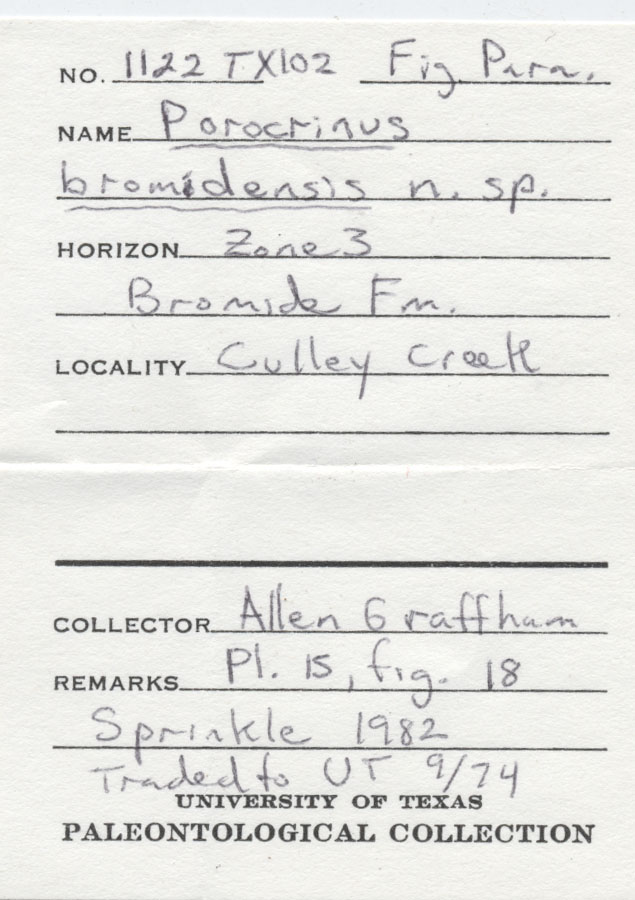 NO. 1122 TX102 Fig. Para.
NAME Porocrinus
bromidensis n. sp.
HORIZON Zone 3
Bromide Fm.
LOCALITY Culley Creek
COLLECTOR Allen Graffham
REMARKS Pl. 15, fig. 18
Sprinkle 1982
Traded to UT 9/74
UNIVERSITY OF TEXAS
PALEONTOLOGICAL COLLECTION